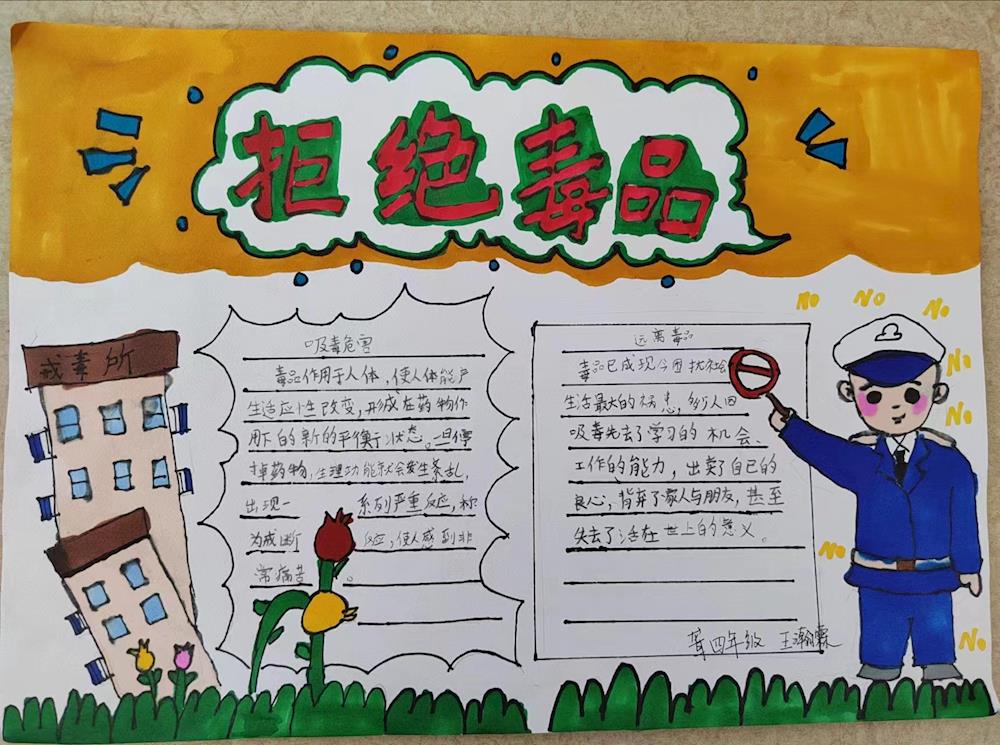 拒绝毒品
戒毒所
吸毒危害
毒品作用于人体，使人体能产
生适应性改变，形成在药物作
用下的新的平衡状态。一旦停
掉药物，生理功能就会发生紊乱，
出现一系列严重反应，称
为戒断反应，使人感到非
常痛苦。
远离毒品
毒品已成现今困扰社会
生活最大的祸患，多少人因
吸毒失去了学习的机会、
工作的能力，出卖了自己的
良心，背弃了家人与朋友，甚至
失去了活在世上的意义。
四年级 王瀚霖
No
No
No
No
No
No
No